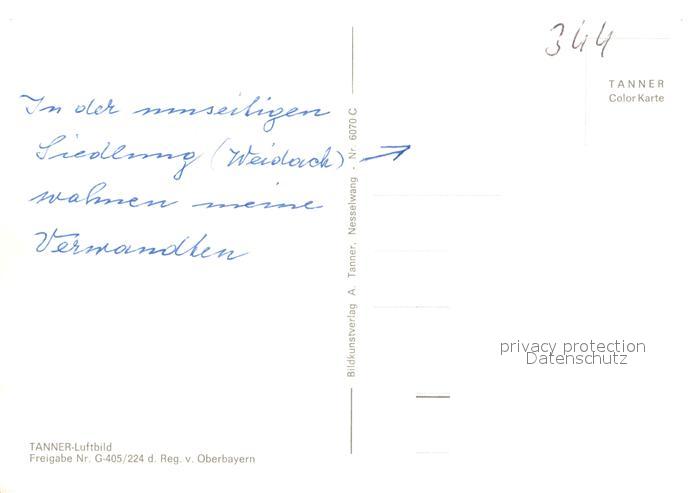 344
TANNER
Color Karte
In der umseitigen
Siedlung (Weidach)
wohnen meine
Verwandten
Bildkunstverlag A. Tanner, Nesselwang - Nr. 6070 C
privacy protection
Datenschutz
TANNER-Luftbild
Freigabe Nr. G-405/224 d. Reg. v. Oberbayern